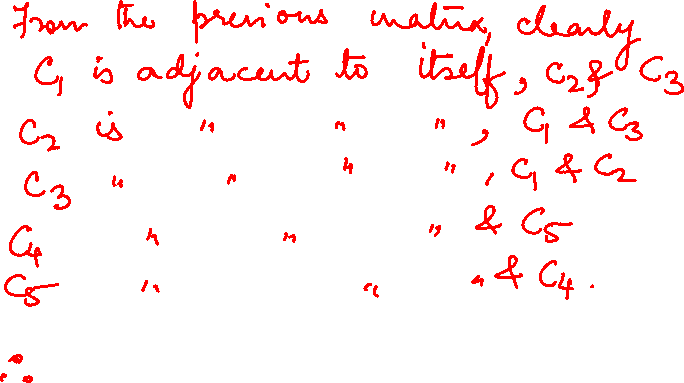 From the previous matrix, clearly
C₁ is adjacent to itself, C₂ & C₃
C₂ is " " ", C₁ & C₃
C₃ " " " ", C₁ & C₂
C₄ " " " & C₅
C₅ " " " & C₄.
∴